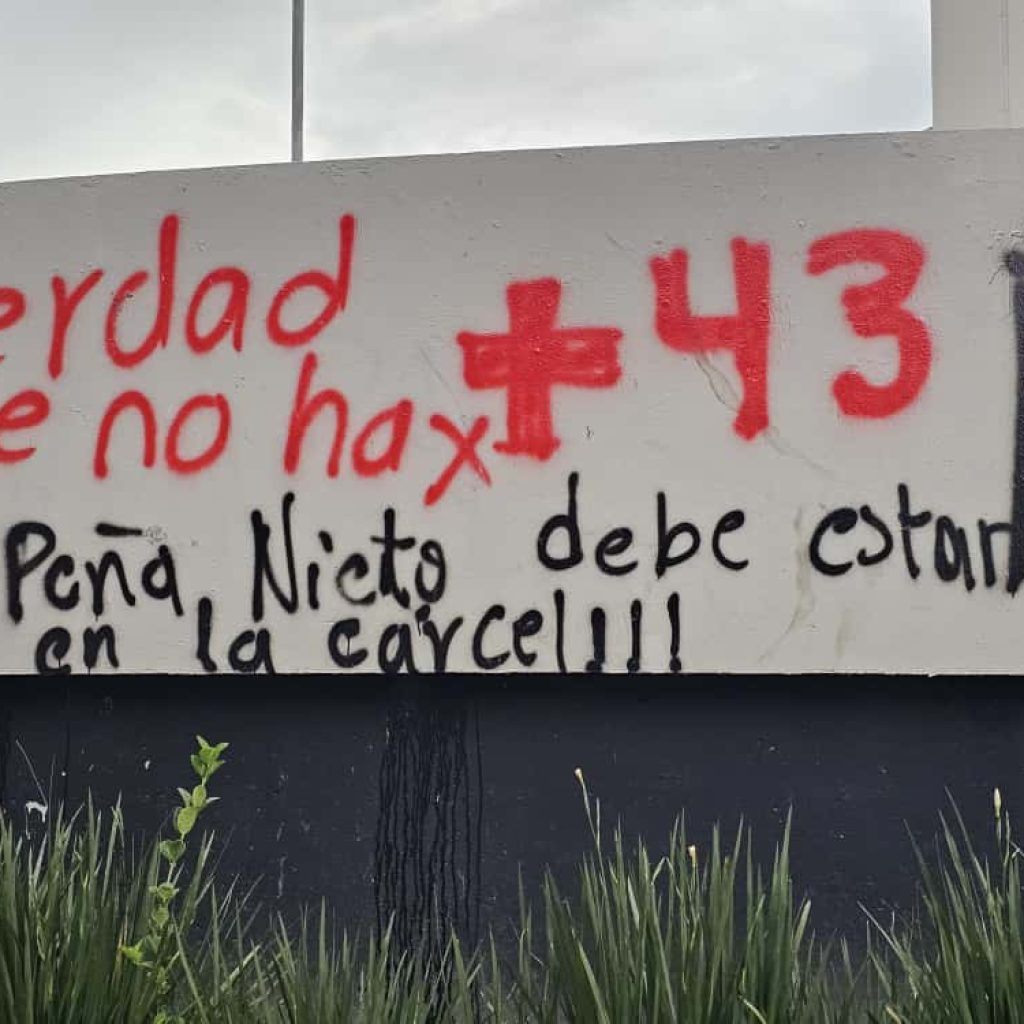 erdad +43
e no hay
Peña Nieto debe estar
en la cárcel!!!